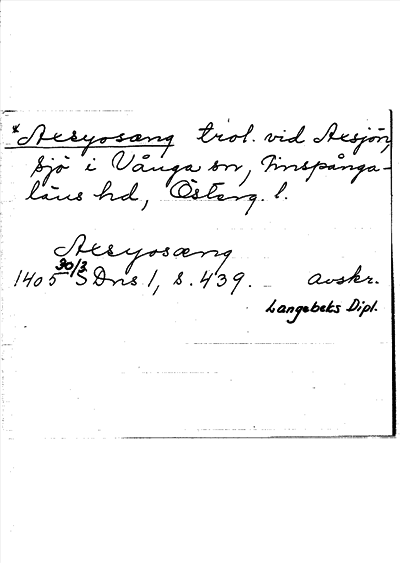 *Axsyosæng trol. vid Axsjön,
sjö i Vånga sn, Finspånga-
läns hd, Österg. l.
Axsyosæng
1405 30/3 SDns 1, s. 439. avskr.
Langebeks Dipl.